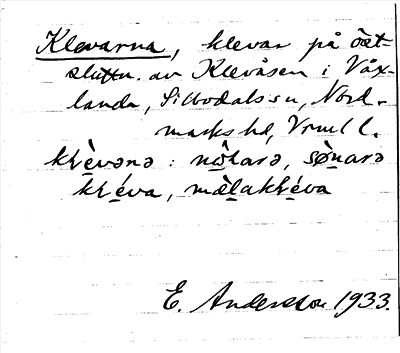 Klevarna, klevar på öst-
sluttn. av Klevåsen iVäx-
landa, Silbodals sn, Nord-
marks hd, Vrml l.
krèvənə : nòlarə, sønarə
kréva, mælakréva
E. Andersson 1933.